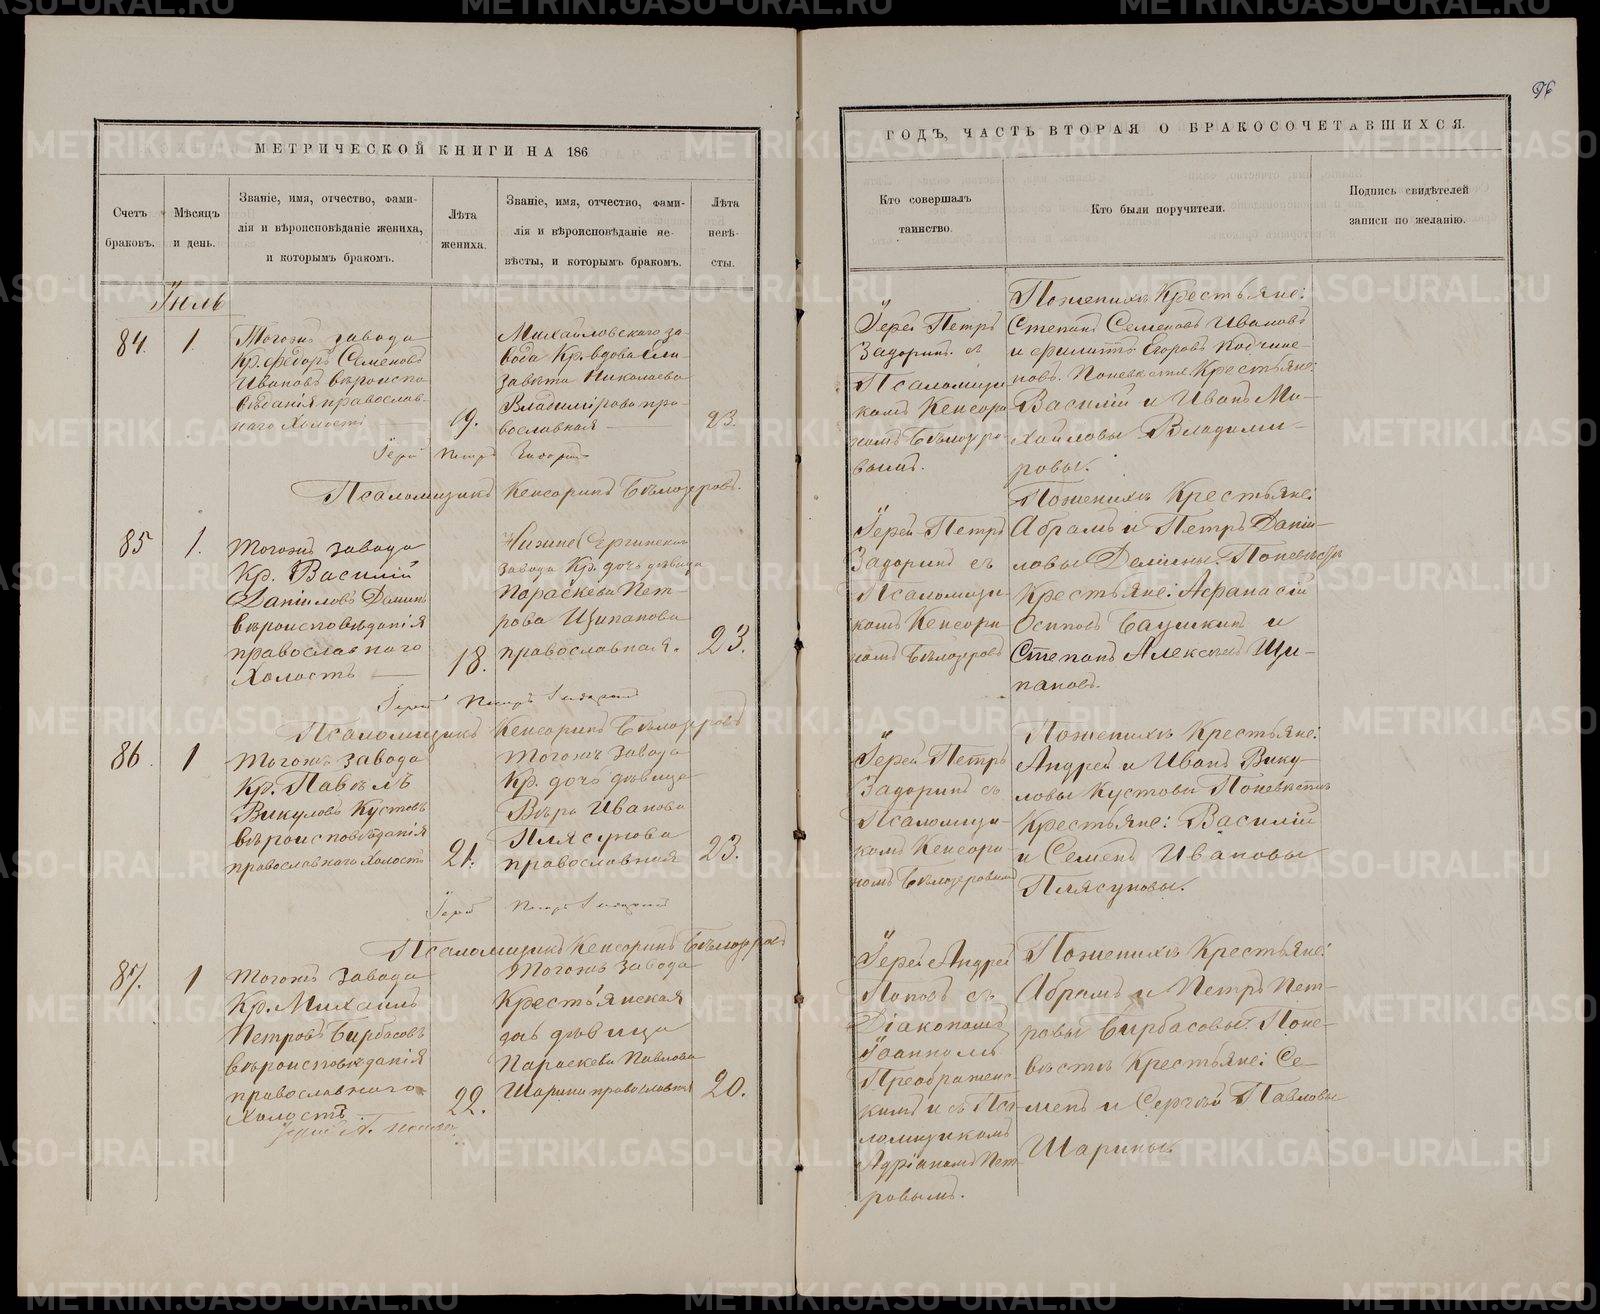 96
МЕТРИЧЕСКОЙ КНИГИ НА 186
ГОДЪ, ЧАСТЬ ВТОРАЯ О БРАКОСОЧЕТАВШИХСЯ.
Счетъ
браковъ.
Мѣсяцъ
и день.
Званіе, имя, отчество, фами-
лія и вѣроисповѣданіе жениха,
и которымъ бракомъ.
Лѣта
жениха.
Званіе, имя, отчество, фами-
лія и вѣроисповѣданіе не-
вѣсты, и которымъ бракомъ.
Лѣта
невѣ-
сты.
Кто совершалъ
таинство.
Кто были поручители.
Подпись свидѣтелей
записи по желанію.
Іюль
84.
1.
Тогожъ завода
Кр. Ѳедоръ Семеновъ
Ивановъ вѣроиспо
вѣданія православ-
наго Холостъ
19.
Михайловскаго за-
вода Кр. вдова Ели-
завѣта Николаева
Владимірова пра-
вославная
23.
Іерей Петръ
Задоринъ съ
Псаломщи
комъ Кенсори
номъ Бѣлозеро-
вымъ.
Пожениху Крестьяне:
Степанъ Семеновъ Ивановъ
и Филиппъ Егоровъ
Поневѣстѣ Крестьяне:
Василій и Иванъ Ми-
хайловы Владими-
ровы.
Іерей Петръ Задоринъ
Псаломщикъ Кенсоринъ Бѣлозеровъ.
85
1.
Тогожъ завода
Кр. Василій
Даніиловъ Деминъ
вѣроисповѣданія
православнаго
Холостъ
18.
Нижне Сергинскаго
завода Кр. дочь дѣвица
Параскева Пет-
рова Щипанова
православная.
23.
Іерей Петръ
Задоринъ съ
Псаломщи-
комъ Кенсори
номъ Бѣлозеровъ
Пожениху Крестьяне:
Абрамъ и Петръ Даніи-
ловы Демины. Поневѣстѣ
Крестьяне: Афанасій
Осиповъ Баушкинъ и
Степанъ Алексѣевъ Щи-
пановъ.
Іерей Петръ Задоринъ
Псаломщикъ Кенсоринъ Бѣлозеровъ
86
1
Тогожъ завода
Кр. Павелъ
Викуловъ Кустовъ
вѣроисповѣданія
православнаго Холостъ
21.
Тогожъ завода
Кр. дочь дѣвица
Вѣра Иванова
Плясунова
православная
23.
Іерей Петръ
Задоринъ съ
Псаломщи-
комъ Кенсори
номъ Бѣлозеровымъ
Пожениху Крестьяне:
Андрей и Иванъ Вику-
ловы Кустовы Поневѣстѣ
Крестьяне: Василій
и Семенъ Ивановы
Плясуновы.
Іерей Петръ Задоринъ
Псаломщикъ Кенсоринъ Бѣлозеровъ
87.
1
Тогожъ завода
Кр. Михаилъ
Петровъ Бирбасовъ
вѣроисповѣданія
православнаго
Холостъ.
22.
Тогожъ завода
Крестьянская
дочь дѣвица
Параскева Павлова
Шарина православная
20.
Іерей Андрей
Поповъ съ
Діакономъ
Іоанномъ
Преображенс
кимъ и съ Пса
ломщикомъ
Адріаномъ Пет
ровымъ.
Пожениху Крестьяне:
Абрамъ и Петръ Пет-
ровы Бирбасовы. Поне-
вѣстѣ Крестьяне: Се-
менъ и Сергѣй Павловы
Шарины.
Іерей А. Поповъ
METRIKI.GASO-URAL.RU